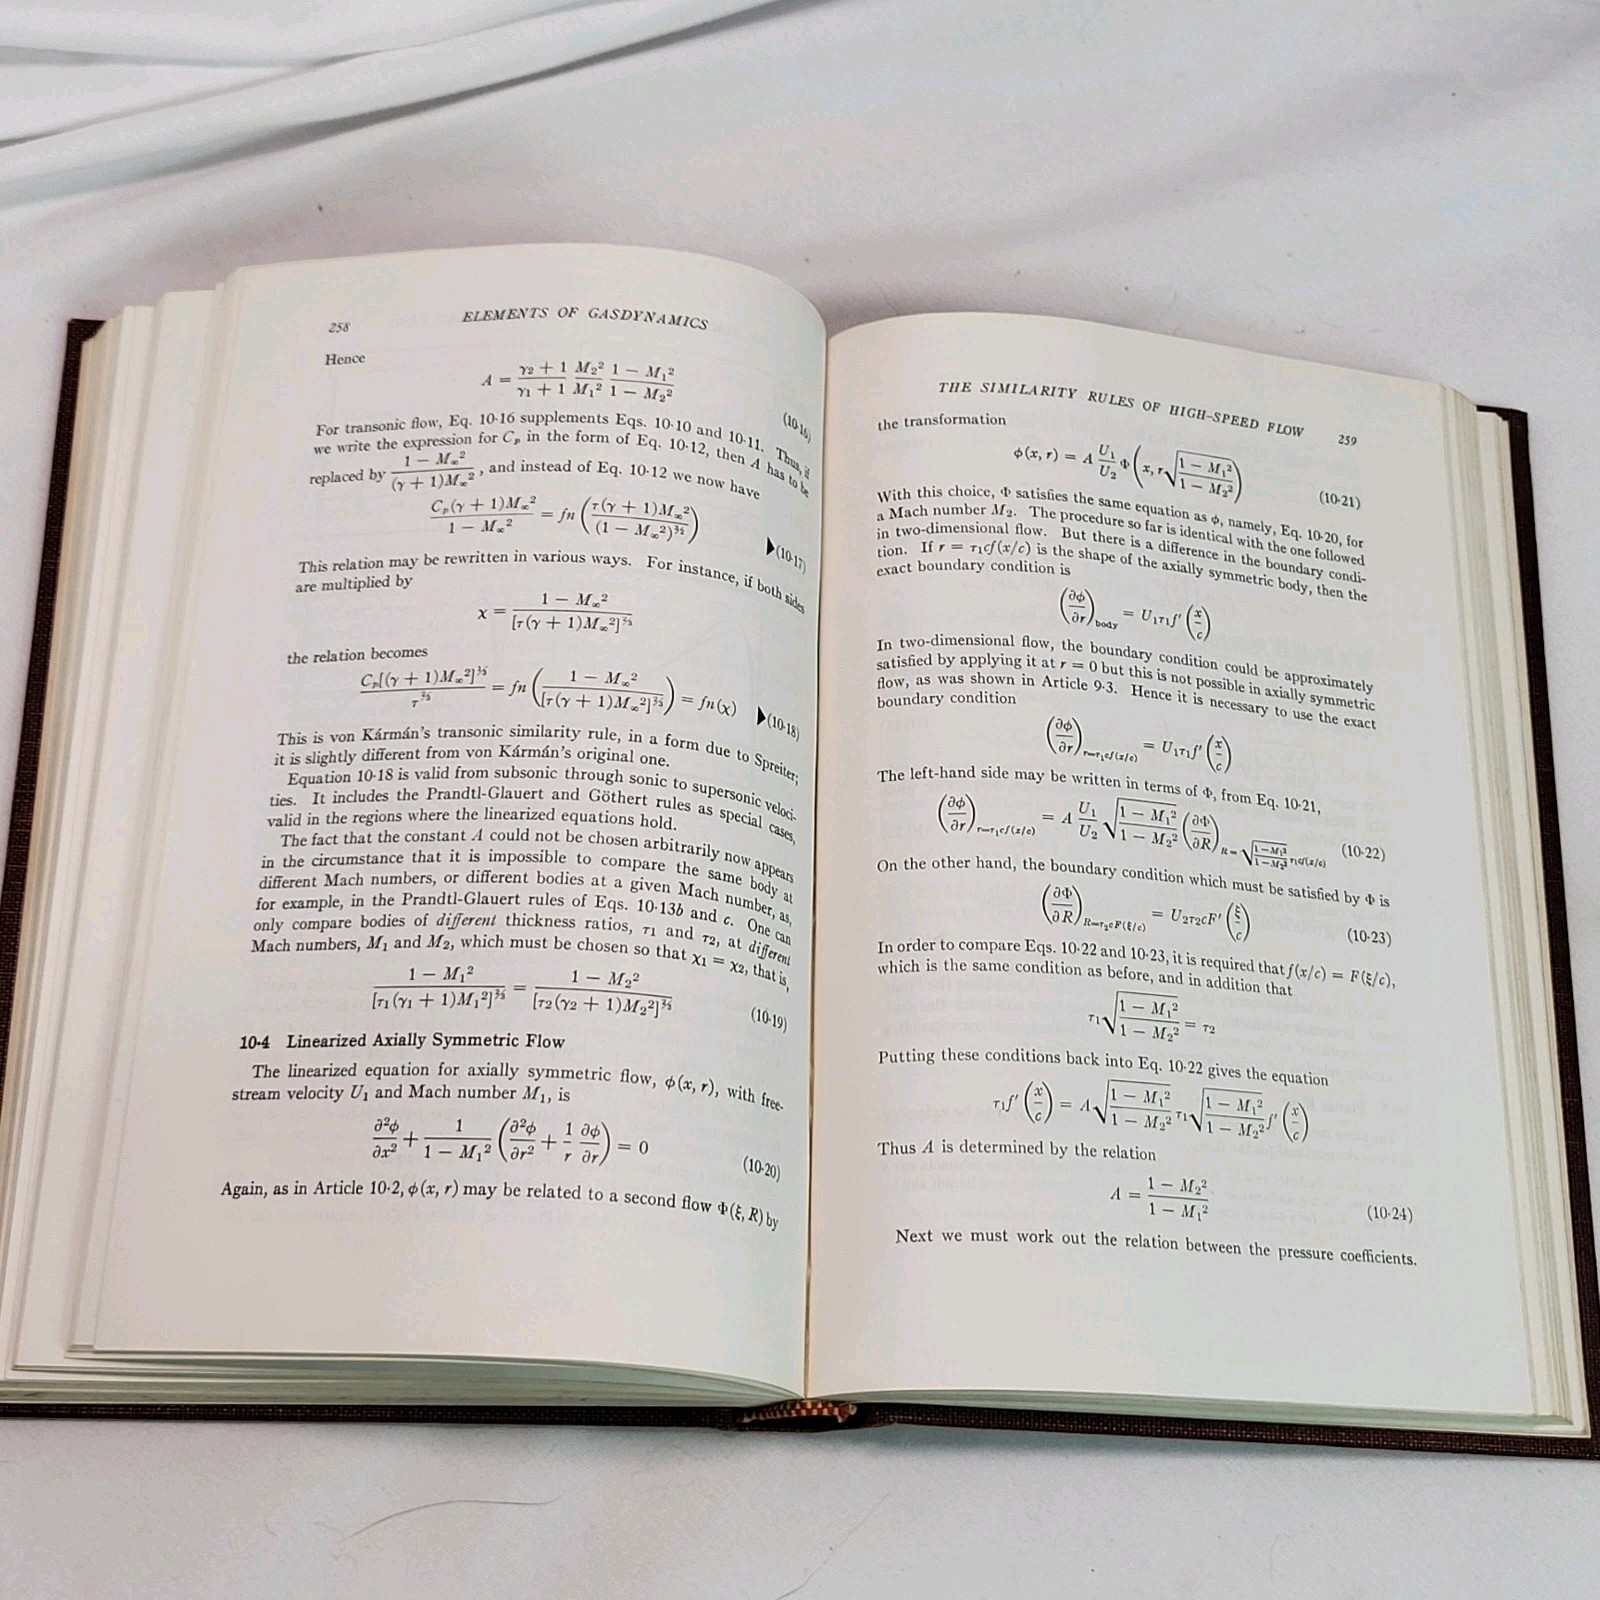 258
ELEMENTS OF GASDYNAMICS
Hence
A = (γ₂ + 1)/(γ₁ + 1) M₂²/M₁² (1 − M₁²)/(1 − M₂²)
(10·16)
For transonic flow, Eq. 10·16 supplements Eqs. 10·10 and 10·11. Thus, if
we write the expression for Cₚ in the form of Eq. 10·12, then A has to be
replaced by (1 − M∞²)/((γ + 1)M∞²), and instead of Eq. 10·12 we now have
Cₚ(γ + 1)M∞²/(1 − M∞²) = fn (τ(γ + 1)M∞²/(1 − M∞²)^{3/2})
▶(10·17)
This relation may be rewritten in various ways. For instance, if both sides
are multiplied by
χ = (1 − M∞²)/[τ(γ + 1)M∞²]^{2/3}
the relation becomes
Cₚ[(γ + 1)M∞²]^{1/3}/τ^{2/3} = fn ((1 − M∞²)/[τ(γ + 1)M∞²]^{2/3}) = fn(χ)
▶(10·18)
This is von Kármán's transonic similarity rule, in a form due to Spreiter;
it is slightly different from von Kármán's original one.
Equation 10·18 is valid from subsonic through sonic to supersonic veloci-
ties. It includes the Prandtl-Glauert and Göthert rules as special cases,
valid in the regions where the linearized equations hold.
The fact that the constant A could not be chosen arbitrarily now appears
in the circumstance that it is impossible to compare the same body at
different Mach numbers, or different bodies at a given Mach number, as,
for example, in the Prandtl-Glauert rules of Eqs. 10·13b and c. One can
only compare bodies of different thickness ratios, τ₁ and τ₂, at different
Mach numbers, M₁ and M₂, which must be chosen so that χ₁ = χ₂, that is,
(1 − M₁²)/[τ₁(γ₁ + 1)M₁²]^{2/3} = (1 − M₂²)/[τ₂(γ₂ + 1)M₂²]^{2/3}
(10·19)
10·4 Linearized Axially Symmetric Flow
The linearized equation for axially symmetric flow, φ(x, r), with free-
stream velocity U₁ and Mach number M₁, is
∂²φ/∂x² + 1/(1 − M₁²) (∂²φ/∂r² + 1/r ∂φ/∂r) = 0
(10·20)
Again, as in Article 10·2, φ(x, r) may be related to a second flow Φ(ξ, R) by
THE SIMILARITY RULES OF HIGH-SPEED FLOW
259
the transformation
φ(x, r) = A U₁/U₂ Φ(x, r√((1 − M₁²)/(1 − M₂²)))
(10·21)
With this choice, Φ satisfies the same equation as φ, namely, Eq. 10·20, for
a Mach number M₂. The procedure so far is identical with the one followed
in two-dimensional flow. But there is a difference in the boundary condi-
tion. If r = τ₁cf(x/c) is the shape of the axially symmetric body, then the
exact boundary condition is
(∂φ/∂r)_body = U₁τ₁f′(x/c)
In two-dimensional flow, the boundary condition could be approximately
satisfied by applying it at r = 0 but this is not possible in axially symmetric
flow, as was shown in Article 9·3. Hence it is necessary to use the exact
boundary condition
(∂φ/∂r)_{r=τ₁cf(x/c)} = U₁τ₁f′(x/c)
The left-hand side may be written in terms of Φ, from Eq. 10·21,
(∂φ/∂r)_{r=τ₁cf(x/c)} = A U₁/U₂ √((1 − M₁²)/(1 − M₂²)) (∂Φ/∂R)_{R=√((1−M₁²)/(1−M₂²)) τ₁cf(x/c)}
(10·22)
On the other hand, the boundary condition which must be satisfied by Φ is
(∂Φ/∂R)_{R=τ₂cF(ξ/c)} = U₂τ₂cF′(ξ/c)
(10·23)
In order to compare Eqs. 10·22 and 10·23, it is required that f(x/c) = F(ξ/c),
which is the same condition as before, and in addition that
τ₁√((1 − M₁²)/(1 − M₂²)) = τ₂
Putting these conditions back into Eq. 10·22 gives the equation
τ₁f′(x/c) = A√((1 − M₁²)/(1 − M₂²)) τ₁√((1 − M₁²)/(1 − M₂²)) f′(x/c)
Thus A is determined by the relation
A = (1 − M₂²)/(1 − M₁²)
(10·24)
Next we must work out the relation between the pressure coefficients.